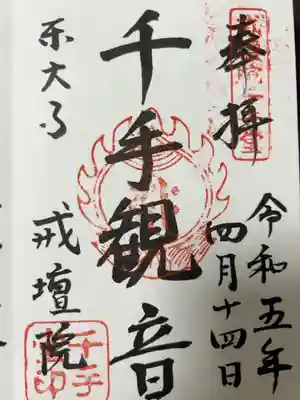 奉拝
令和五年
四月十四日
千手観音
東大寺
戒壇院